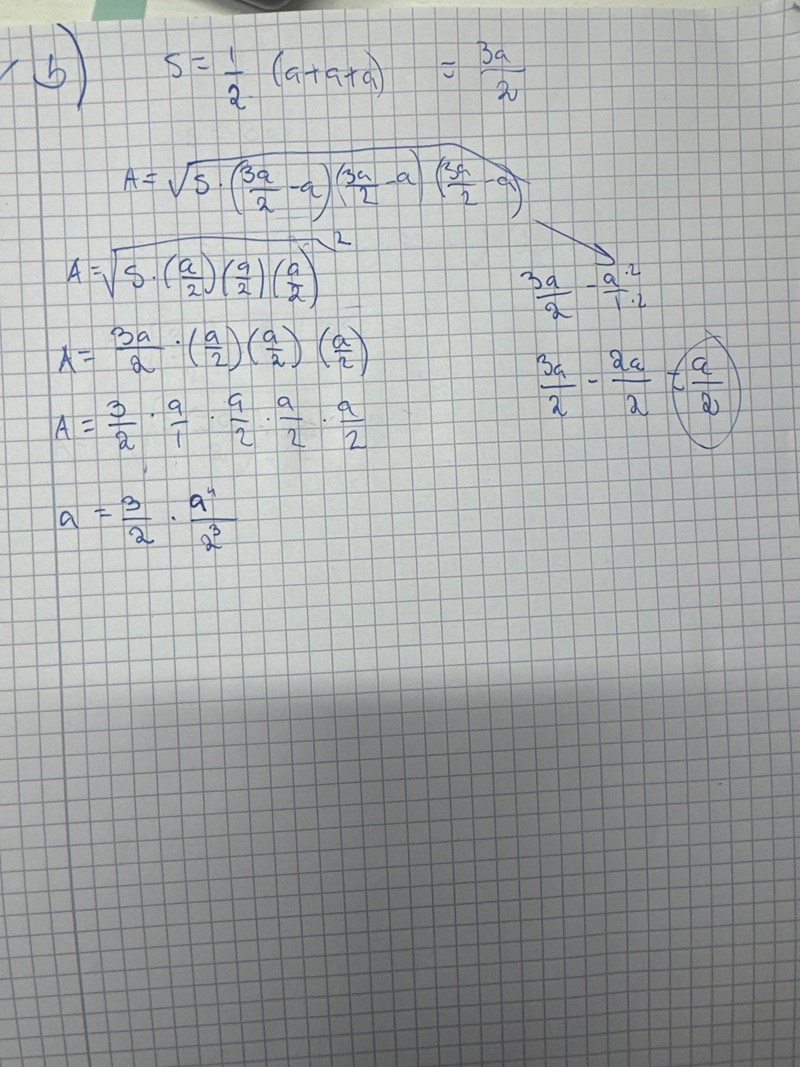 b) S = 1/2 (a+a+a) = 3a/2
A = √(S · (3a/2 - a) (3a/2 - a) (3a/2 - a))
A = √(S · (a/2) (a/2) (a/2)) ²
3a/2 - a·2/1·2
A = 3a/2 · (a/2) (a/2) (a/2)
3a/2 - 2a/2 = a/2
A = 3/2 · a/1 · a/2 · a/2 · a/2
a = 3/2 · a⁴/2³